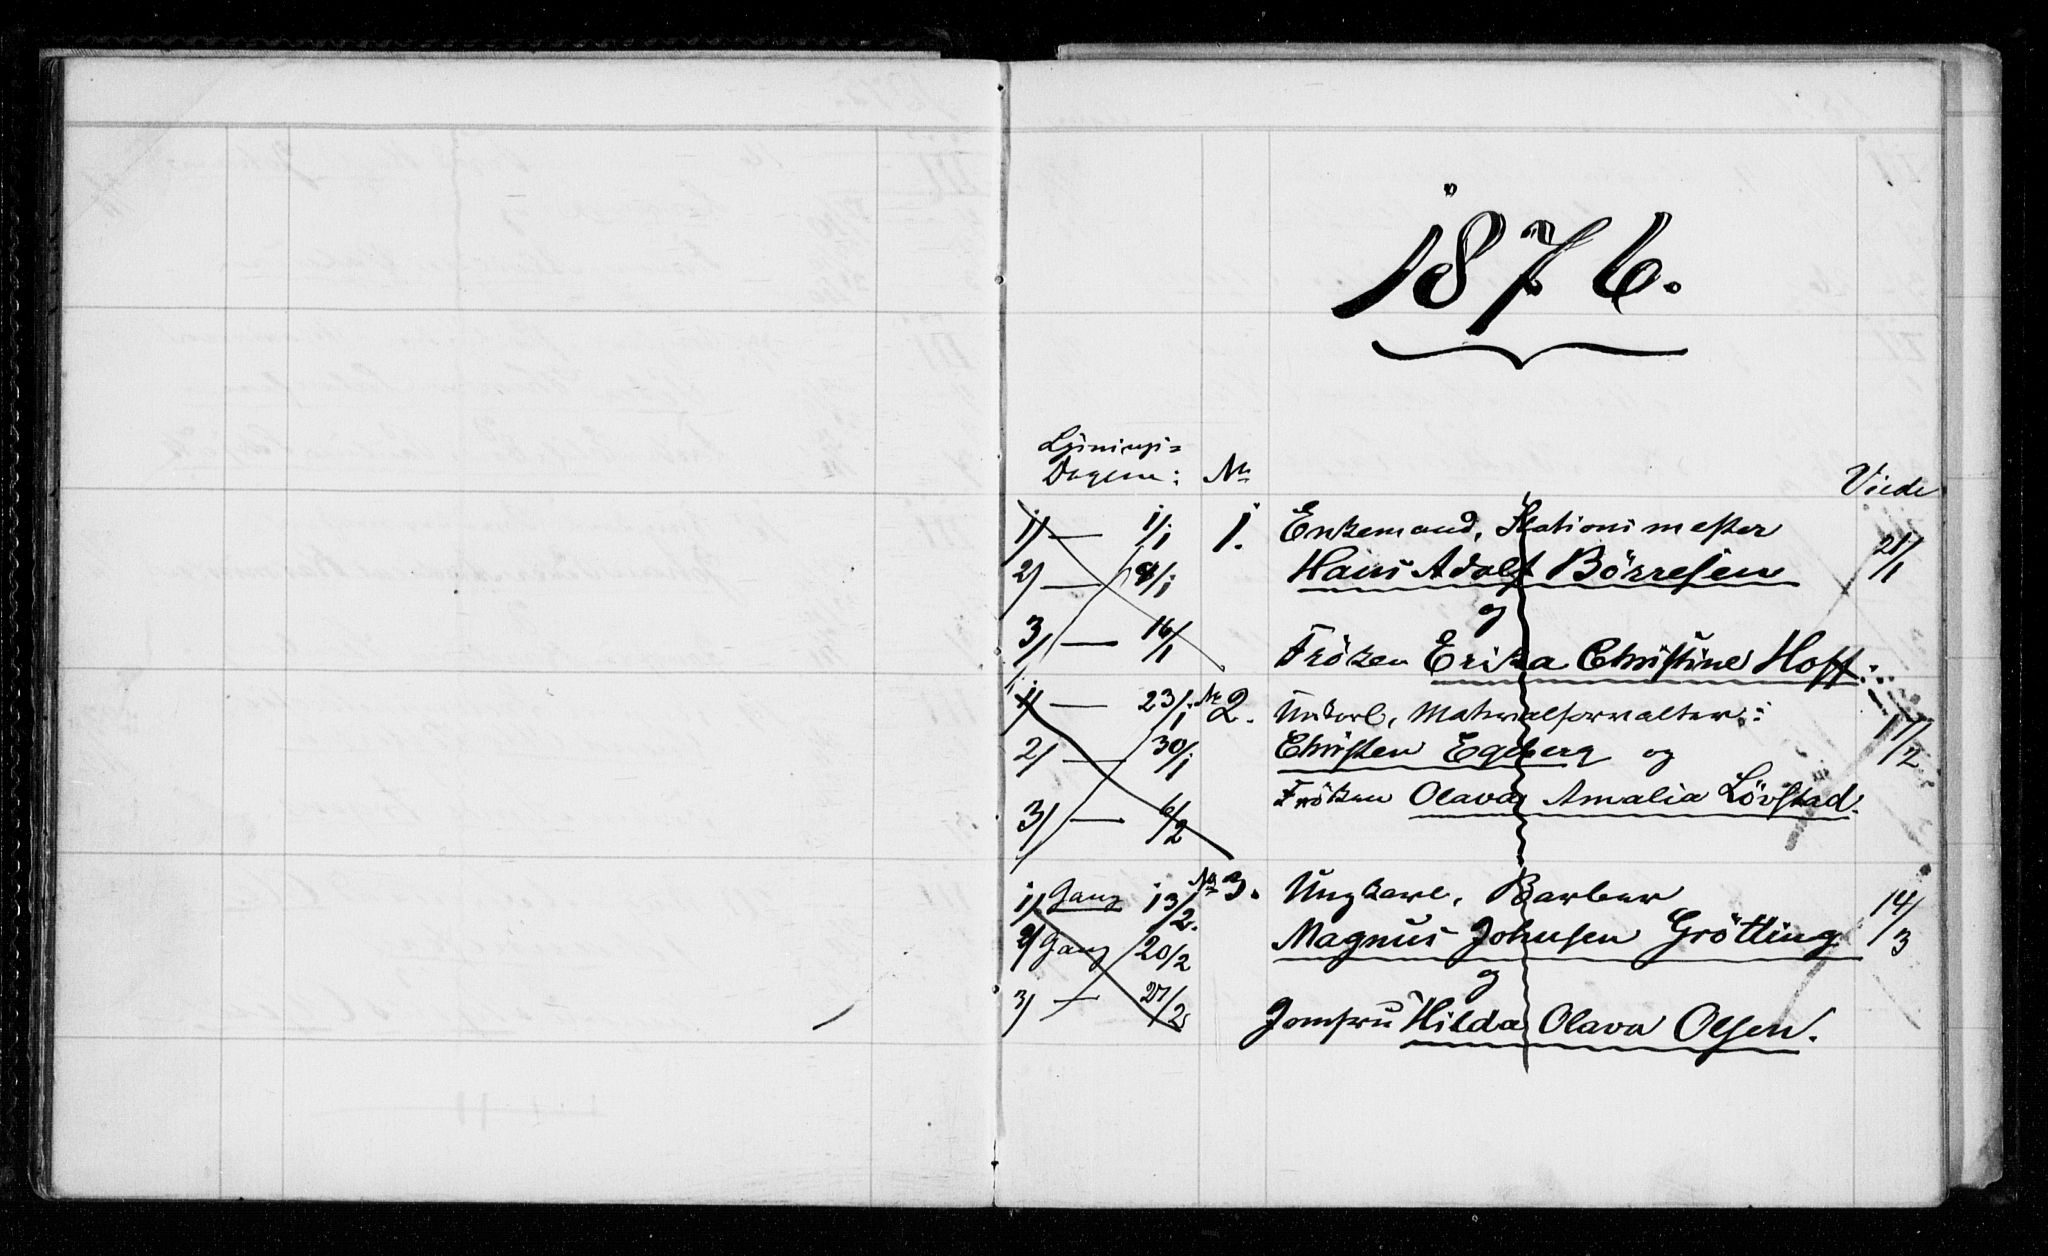 1876.
Lysnings=
Dagene: No Viede
1/ — 1/1 1. Enkemand, Stationsmester
Hans Adolf Börresen 21/1
2/ — 9/1
og
3/ — 16/1 Fröken Erika Christine Hoff.
1/ — 23/1 No 2. Unkarl, Materialforvalter:
2/ — 30/1 Christen Egeberg og 17/2
3/ — 6/2 Fröken Olava Amalia Lövstad.
1/ Gang 13/2. No 3. Ungkarl, Barber 14/3
2/ Gang 20/2 Magnus Johnsen Grötting
og
3/ — 27/2 Jomfru Hilda Olava Olsen.